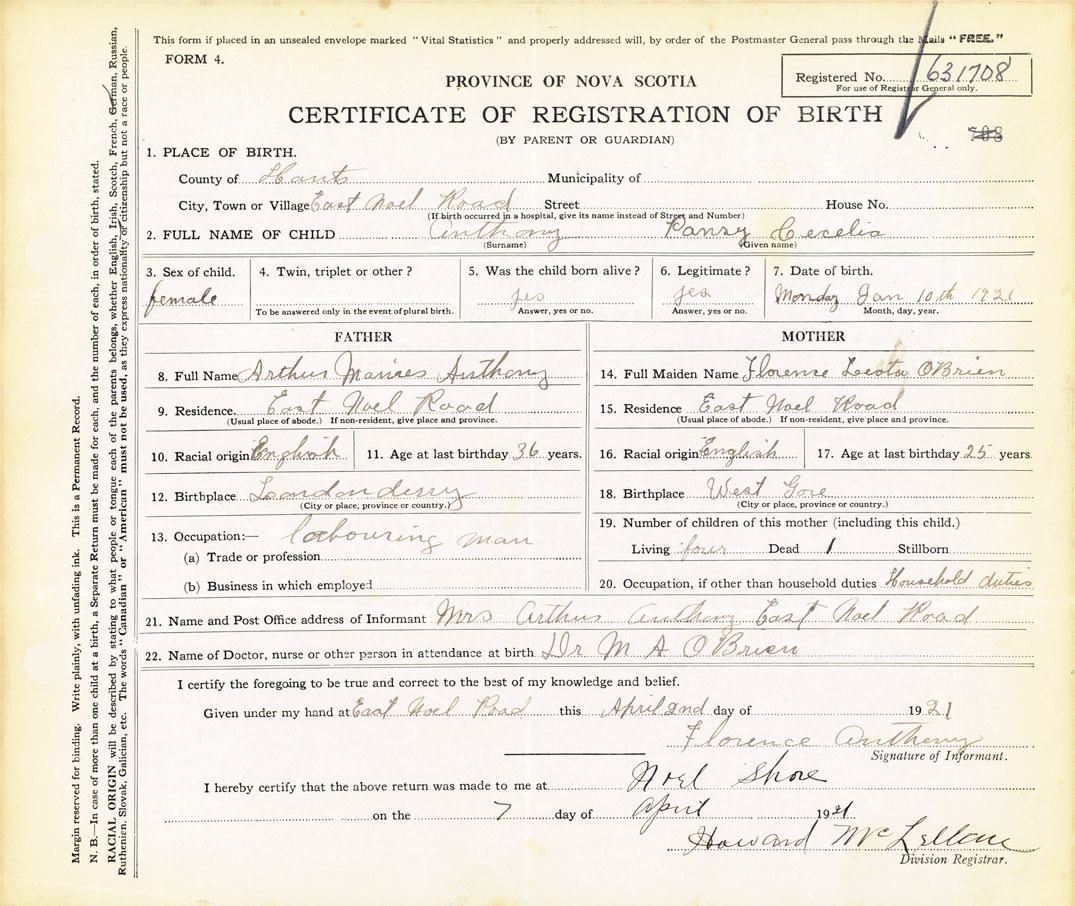 This form if placed in an unsealed envelope marked "Vital Statistics" and properly addressed will, by order of the Postmaster General pass through the Mails "FREE."
FORM 4.
Registered No. 631708
For use of Registrar General only.
PROVINCE OF NOVA SCOTIA
CERTIFICATE OF REGISTRATION OF BIRTH
(BY PARENT OR GUARDIAN)
708
1. PLACE OF BIRTH.
County of Hants Municipality of
City, Town or Village East Noel Road Street House No.
(If birth occurred in a hospital, give its name instead of Street and Number)
2. FULL NAME OF CHILD Anthony Pansy Cecelia
(Surname) (Given name)
3. Sex of child. 4. Twin, triplet or other? 5. Was the child born alive? 6. Legitimate? 7. Date of birth.
female yes yes Monday Jan 10th 1921
To be answered only in the event of plural birth. Answer, yes or no. Answer, yes or no. Month, day, year.
FATHER MOTHER
8. Full Name Arthur Anthony 14. Full Maiden Name Florence Leota O'Brien
9. Residence. East Noel Road 15. Residence East Noel Road
(Usual place of abode.) If non-resident, give place and province. (Usual place of abode.) If non-resident, give place and province.
10. Racial origin English 11. Age at last birthday 36 years. 16. Racial origin English 17. Age at last birthday 25 years.
12. Birthplace Londonderry 18. Birthplace West Gore
(City or place, province or country.) (City or place, province or country.)
13. Occupation:— labouring man 19. Number of children of this mother (including this child.)
(a) Trade or profession Living four Dead 1 Stillborn
(b) Business in which employed 20. Occupation, if other than household duties Household duties
21. Name and Post Office address of Informant Mrs Arthur Anthony East Noel Road
22. Name of Doctor, nurse or other person in attendance at birth Dr M A O'Brien
I certify the foregoing to be true and correct to the best of my knowledge and belief.
Given under my hand at East Noel Road this April 2nd day of 1921
Florence Anthony
Signature of Informant.
I hereby certify that the above return was made to me at Noel Shore
on the 7 day of April 1921
Howard McLellan
Division Registrar.
Margin reserved for binding. Write plainly, with unfading ink. This is a Permanent Record.
N. B.—In case of more than one child at a birth, a Separate Return must be made for each, and the number of each, in order of birth, stated.
RACIAL ORIGIN will be described by stating to what people or tongue each of the parents belongs, whether English, Irish, Scotch, French, German, Russian,
Ruthenien, Slovak, Galician, etc. The words "Canadian" or "American" must not be used, as they express nationality or citizenship but not a race or people.